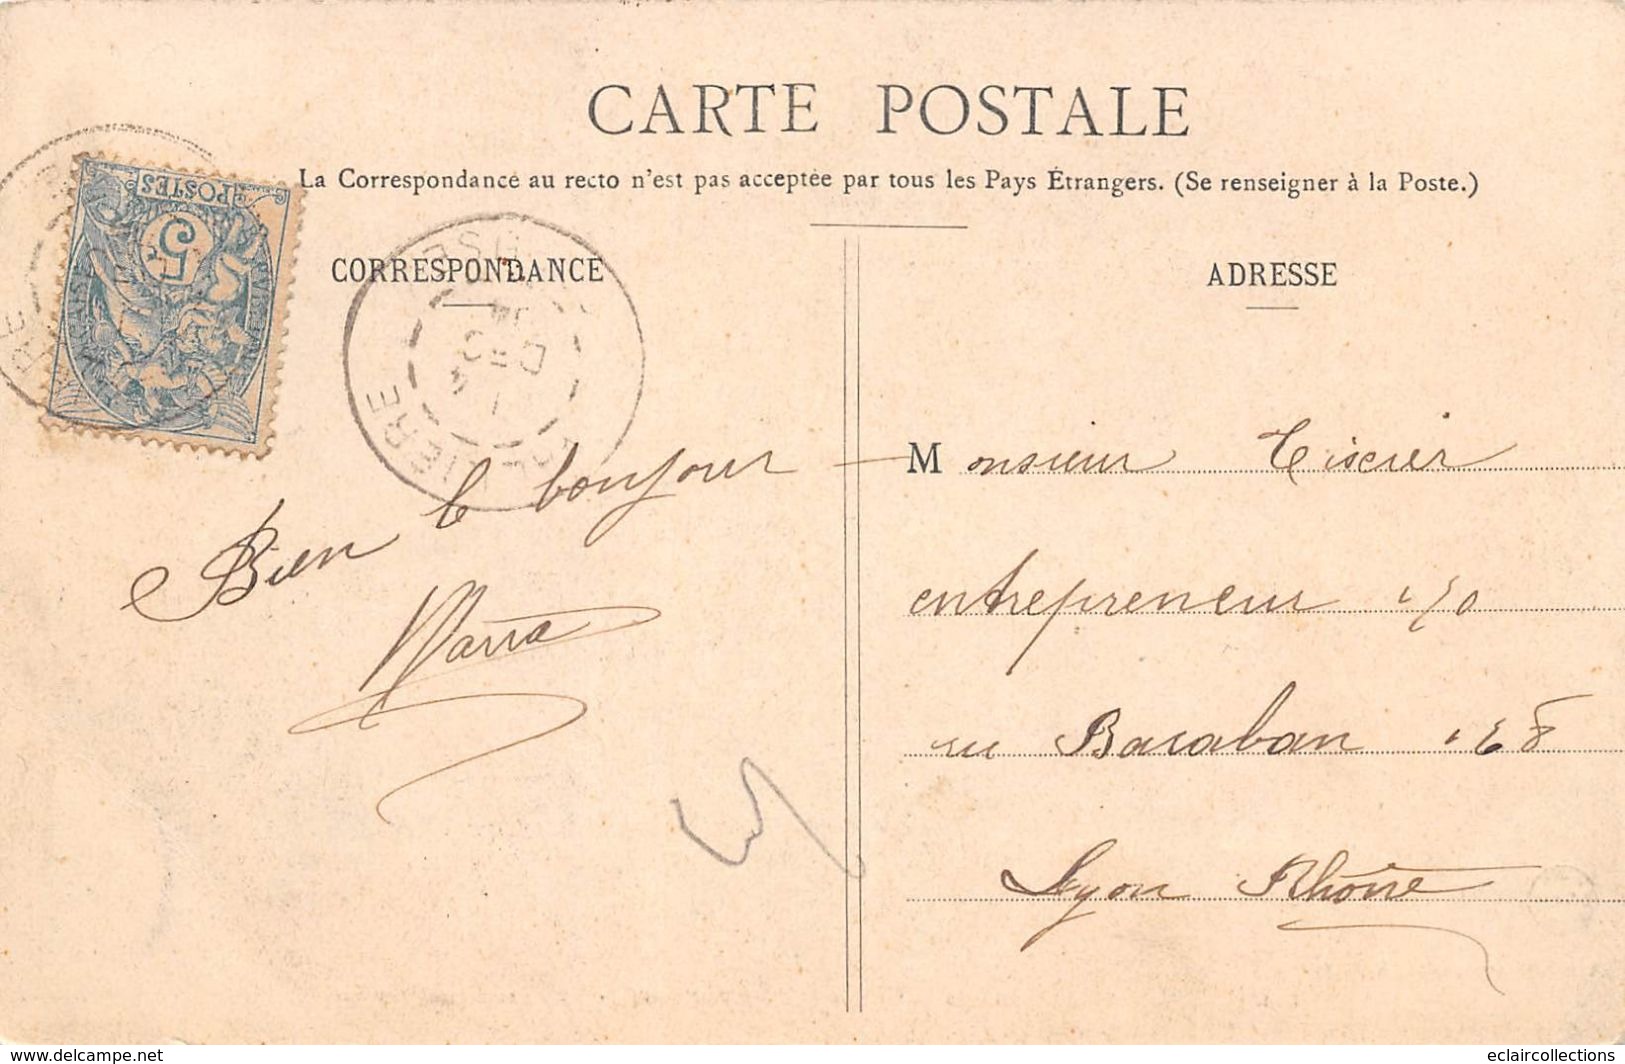 CARTE POSTALE
La Correspondance au recto n'est pas acceptée par tous les Pays Étrangers. (Se renseigner à la Poste.)
POSTES
5
CORRESPONDANCE
ADRESSE
Bien le bonjour
Monsieur
entrepreneur
Baraban
Lyon Rhône
www.delcampe.net
eclaircollections